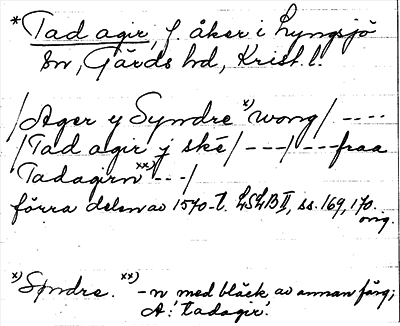 *Tad agir, f. åker i Lyngsjö
sn, Gärds hd, Krist. l.
/Ager y Syndre x) wong/ ----
/Tad agir y ske/ ---/---fraa
Tadagirn xx) ---/
förra delen av 1570-t. LSLB II, ss. 169, 170.
orig.
x) Syndre. xx) -n med bläck av annan färg;
A: tadagir.